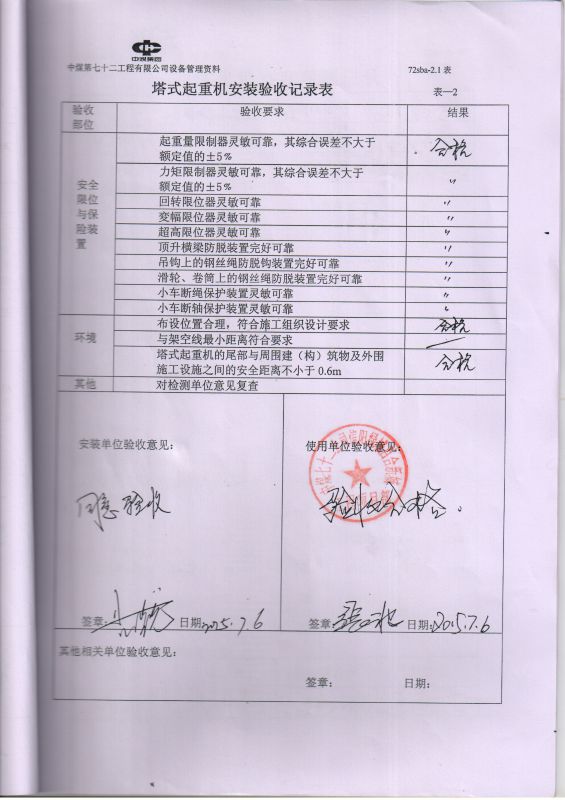 中煤集团
中煤第七十二工程有限公司设备管理资料
72sba-2.1 表
塔式起重机安装验收记录表
表—2
验收部位 验收要求 结果
安全限位与保险装置
起重量限制器灵敏可靠，其综合误差不大于
额定值的±5%
合格
力矩限制器灵敏可靠，其综合误差不大于
额定值的±5%
〃
回转限位器灵敏可靠 〃
变幅限位器灵敏可靠 〃
超高限位器灵敏可靠 〃
顶升横梁防脱装置完好可靠 〃
吊钩上的钢丝绳防脱钩装置完好可靠 〃
滑轮、卷筒上的钢丝绳防脱装置完好可靠 〃
小车断绳保护装置灵敏可靠 〃
小车断轴保护装置灵敏可靠 〃
环境
布设位置合理，符合施工组织设计要求 合格
与架空线最小距离符合要求
塔式起重机的尾部与周围建（构）筑物及外围
施工设施之间的安全距离不小于 0.6m
合格
其他 对检测单位意见复查
安装单位验收意见：
同意验收
签章： 日期：2015.7.6
使用单位验收意见：
验收合格.
签章： 日期：2015.7.6
其他相关单位验收意见：
签章： 日期：